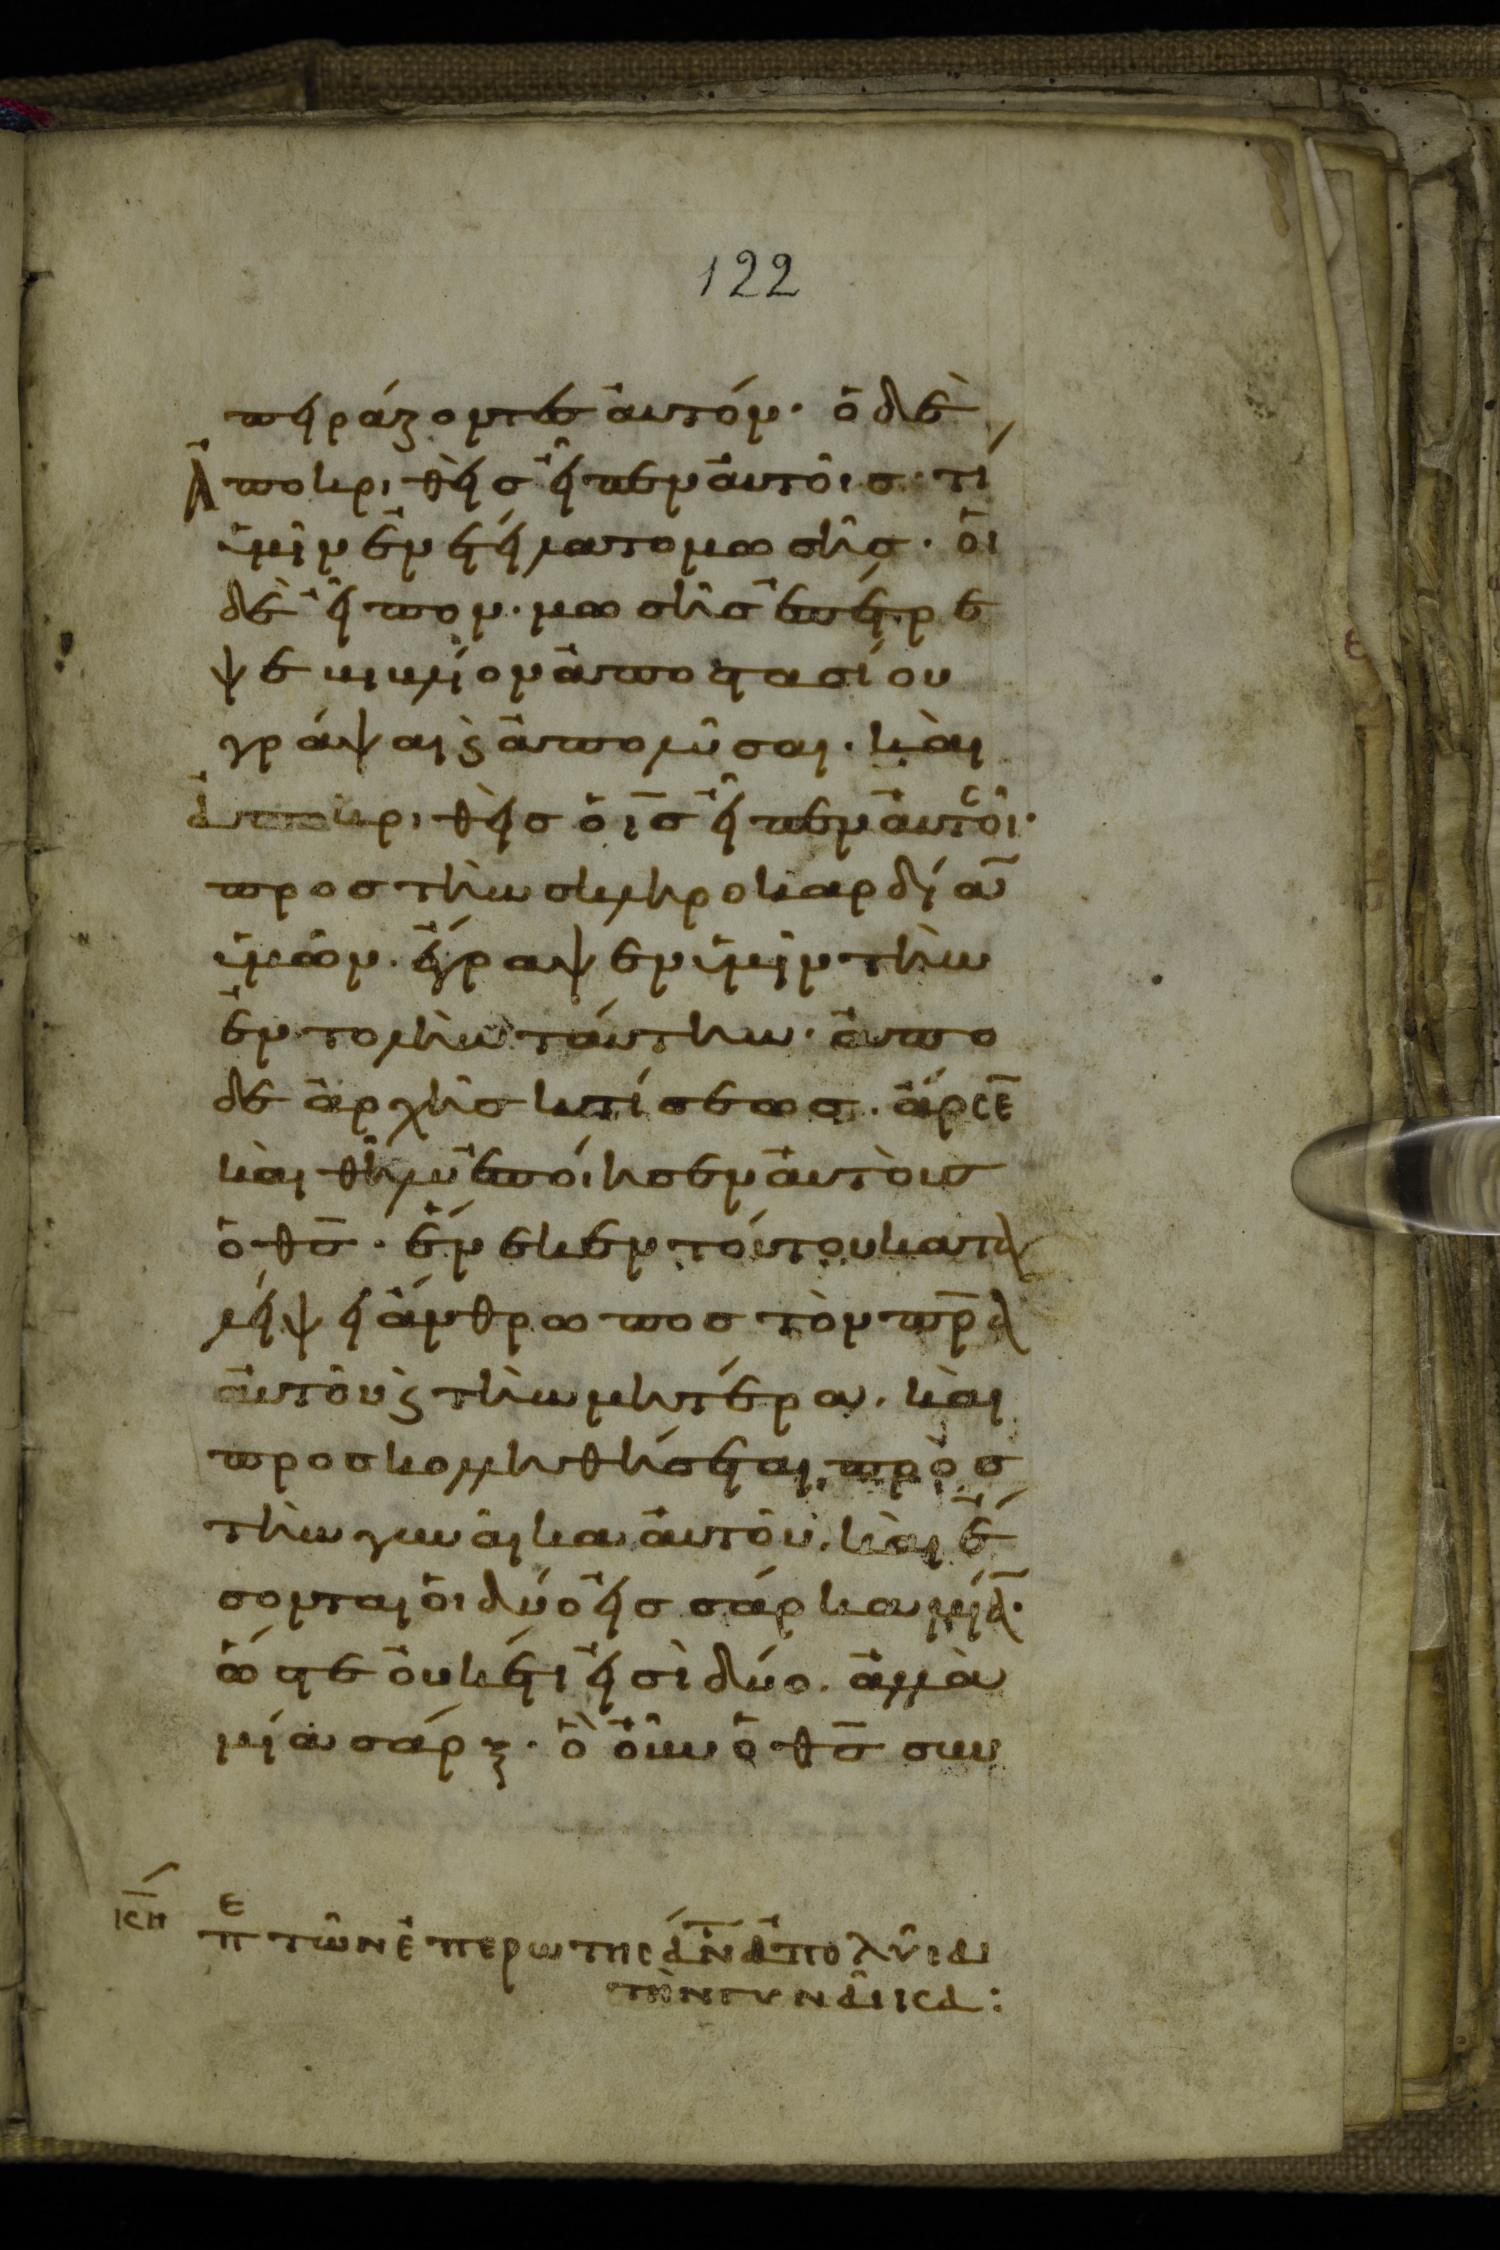 122
πειράζοντες ἀυτόν· ὁ δὲ
Ἀποκριθεὶς εἶπεν ἀυτοῖς· τί
ὑμῖν ἐνετείλατο μωσῆς· ὁι
δὲ εἶπον· μωσῆς ἐπέτρε
ψε βιβλίον ἀποστασίου
γράψαι ϗ ἀπολῦσαι· καὶ
ἀποκριθεὶς ὁ ις̅ εἶπεν ἀυτοῖς·
προς τὴν σκληροκαρδίαν̅
ὑμῶν· ἔγραψεν ὑμῖν τὴν
ἐντολὴν ταύτην· ἀπο
δε ἀρχῆς κτίσεως· ἄρσε̅
καὶ θῆλυ ἐποίησεν ἀυτοὺς
ὁ θς̅· ἕνεκεν τούτου κατα
λείψει ἄνθρωπος τὸν πρ̅α
ἀυτοῦ ϗ τὴν μητέρα· καὶ
προσκολληθήσεται πρὸς
τὴν γυναῖκα ἀυτοῦ· καὶ ἔ
σονται ὁι δύο εἰς σάρκα μία̅·
ὥστε ὀυκέτι εἰσὶ δύο· ἀλλὰ
μία σάρξ· ὃ ὀῦν ὁ θς̅ συν
κη̅ πε τῶν ἐπερωτησάν̅ ἀπολῦσαι
τὴν γυναῖκα: